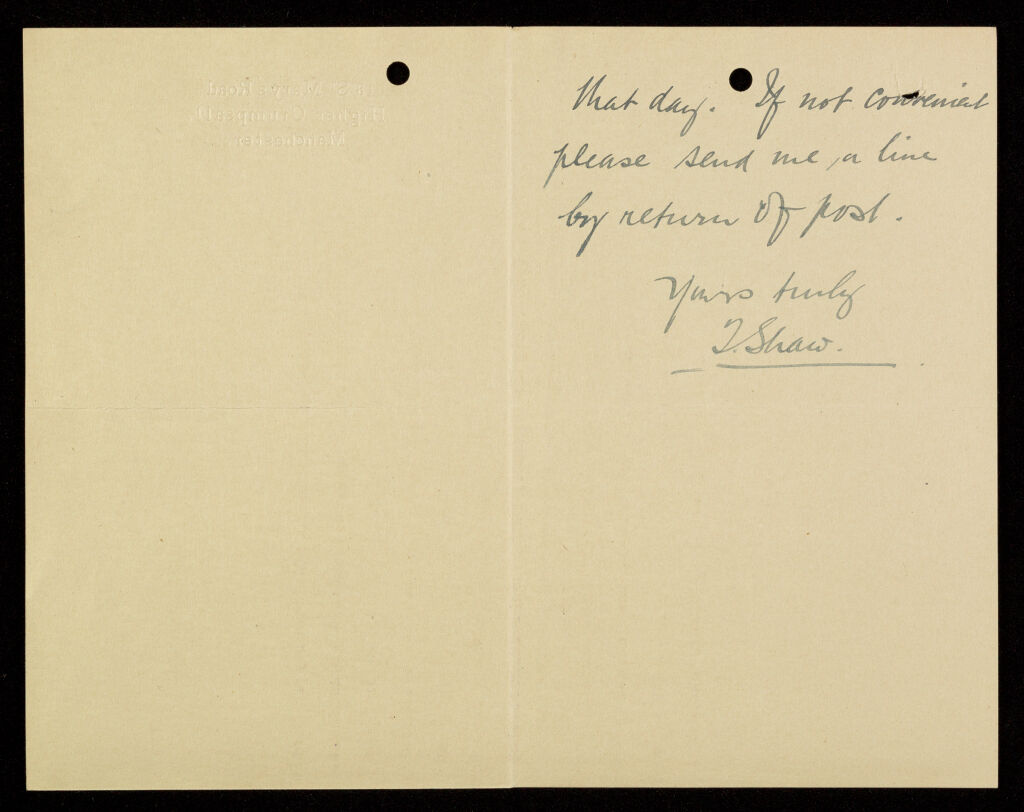 S. Mary's Road
Higher Crumpsall,
Manchester.
that day. If not convenient
please send me, a line
by return of post.
Yours truly
T. Shaw.